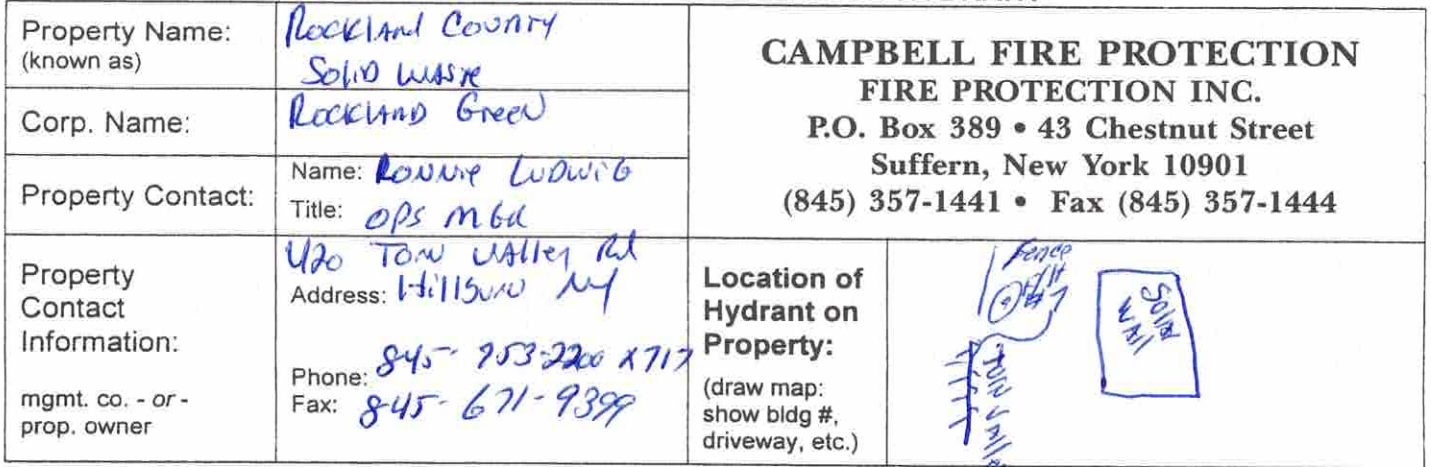 Property Name:
(known as)
Rockland County
Solid Waste
Corp. Name:
Rockland Green
Property Contact:
Name: Ronnie Ludwig
Title: OPS MGR
Property
Contact
Information:
mgmt. co. - or -
prop. owner
420 Torn Valley Rd
Address: Hillburn NY
Phone: 845-753-2200 X717
Fax: 845-671-9399
CAMPBELL FIRE PROTECTION
FIRE PROTECTION INC.
P.O. Box 389 • 43 Chestnut Street
Suffern, New York 10901
(845) 357-1441 • Fax (845) 357-1444
Location of
Hydrant on
Property:
(draw map:
show bldg #,
driveway, etc.)
Fence
Solid
Torn Valle